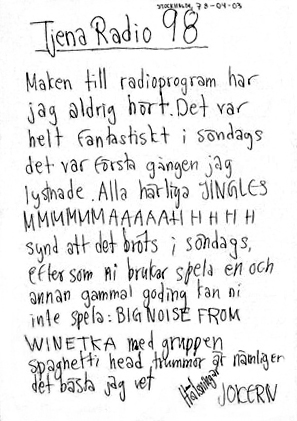 STOCKHOLM, 78-04-03
Tjena Radio 98
Maken till radioprogram har
jag aldrig hört. Det var
helt fantastiskt i söndags
det var första gången jag
lyssnade. Alla härliga JINGLES
MMMMMMAAAAAHHHHH
synd att det bröts i söndags,
eftersom ni brukar spela en och
annan gammal goding kan ni
inte spela: BIG NOISE FROM
WINETKA med gruppen
spaghetti head, trummor är nämligen
det bästa jag vet
Hälsningar
JOKERN